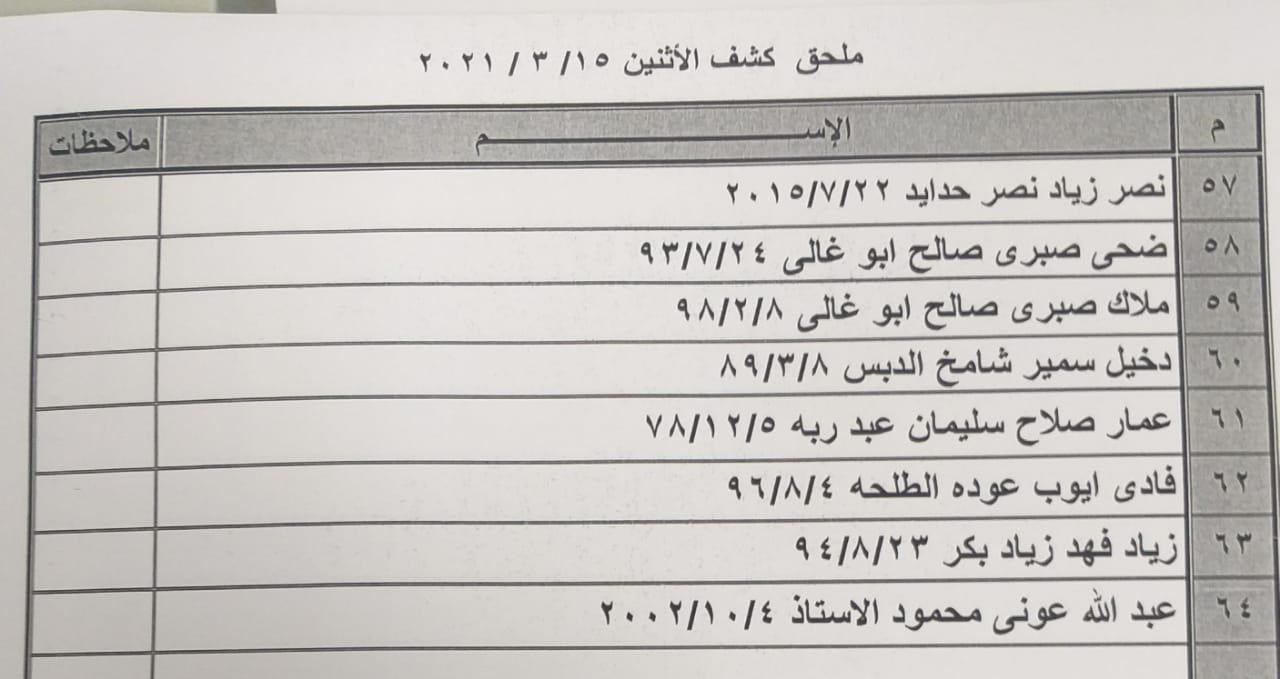 ملحق كشف الأثنين ١٥/ ٣ / ٢٠٢١
م الإســـــم ملاحظات
٥٧ نصر زياد نصر حدايد ٢٠١٥/٧/٢٢
٥٨ ضحى صبرى صالح ابو غالى ٩٣/٧/٢٤
٥٩ ملاك صبرى صالح ابو غالى ٩٨/٢/٨
٦٠ دخيل سمير شامخ الدبس ٨٩/٣/٨
٦١ عمار صلاح سليمان عبد ربه ٧٨/١٢/٥
٦٢ فادى ايوب عوده الطلحه ٩٦/٨/٤
٦٣ زياد فهد زياد بكر ٩٤/٨/٢٣
٦٤ عبد الله عونى محمود الاستاذ ٢٠٠٢/١٠/٤